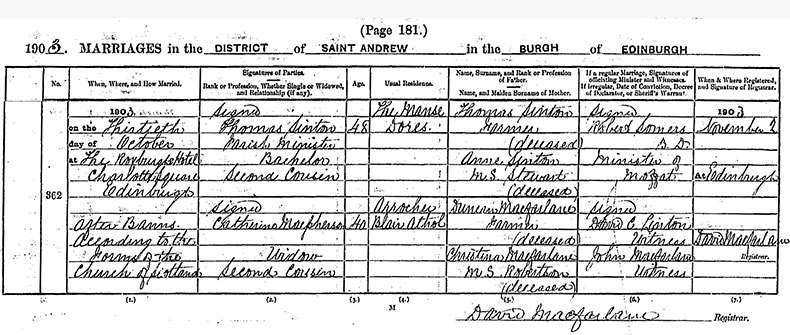 (Page 181.)
1903. MARRIAGES in the DISTRICT of SAINT ANDREW in the BURGH of EDINBURGH
No.
When, Where, and How Married.
Signatures of Parties.
Rank or Profession, Whether Single or Widowed, and Relationship (if any).
Age.
Usual Residence.
Name, Surname, and Rank or Profession of Father.
Name, and Maiden Surname of Mother.
If a regular Marriage, Signatures of officiating Minister and Witnesses.
If irregular, Date of Conviction, Decree of Declarator, or Sheriff's Warrant.
When & Where Registered, and Signature of Registrar.
362
1903
on the Thirtieth
day of October
at The Roxburghe Hotel
Charlotte Square
Edinburgh
After Banns
According to the
Forms of the
Church of Scotland
signed
Thomas Sinton
Parish Minister
Bachelor
Second Cousin
signed
Catherine Macpherson
Widow
Second Cousin
48
40
The Manse
Dores
Blair Athol
Thomas Sinton
Farmer
(deceased)
Anne Sinton
M.S. Stewart
(deceased)
Duncan Macfarlane
Farmer
(deceased)
Christina Macfarlane
M.S. Robertson
(deceased)
signed
Robert Somers
D.D.
Minister of
signed
David C.
Witness
John Macfarlane
Witness
1903
November 2
at Edinburgh
David Macfarlane
Registrar.
(1.) (2.) (3.) (4.) (5.) (6.) (7.)
M
David Macfarlane Registrar.